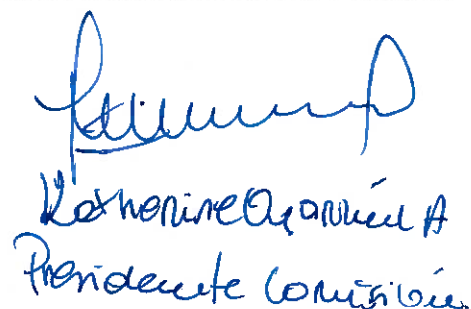 Katherine Oyarzún A
Presidente Comisión